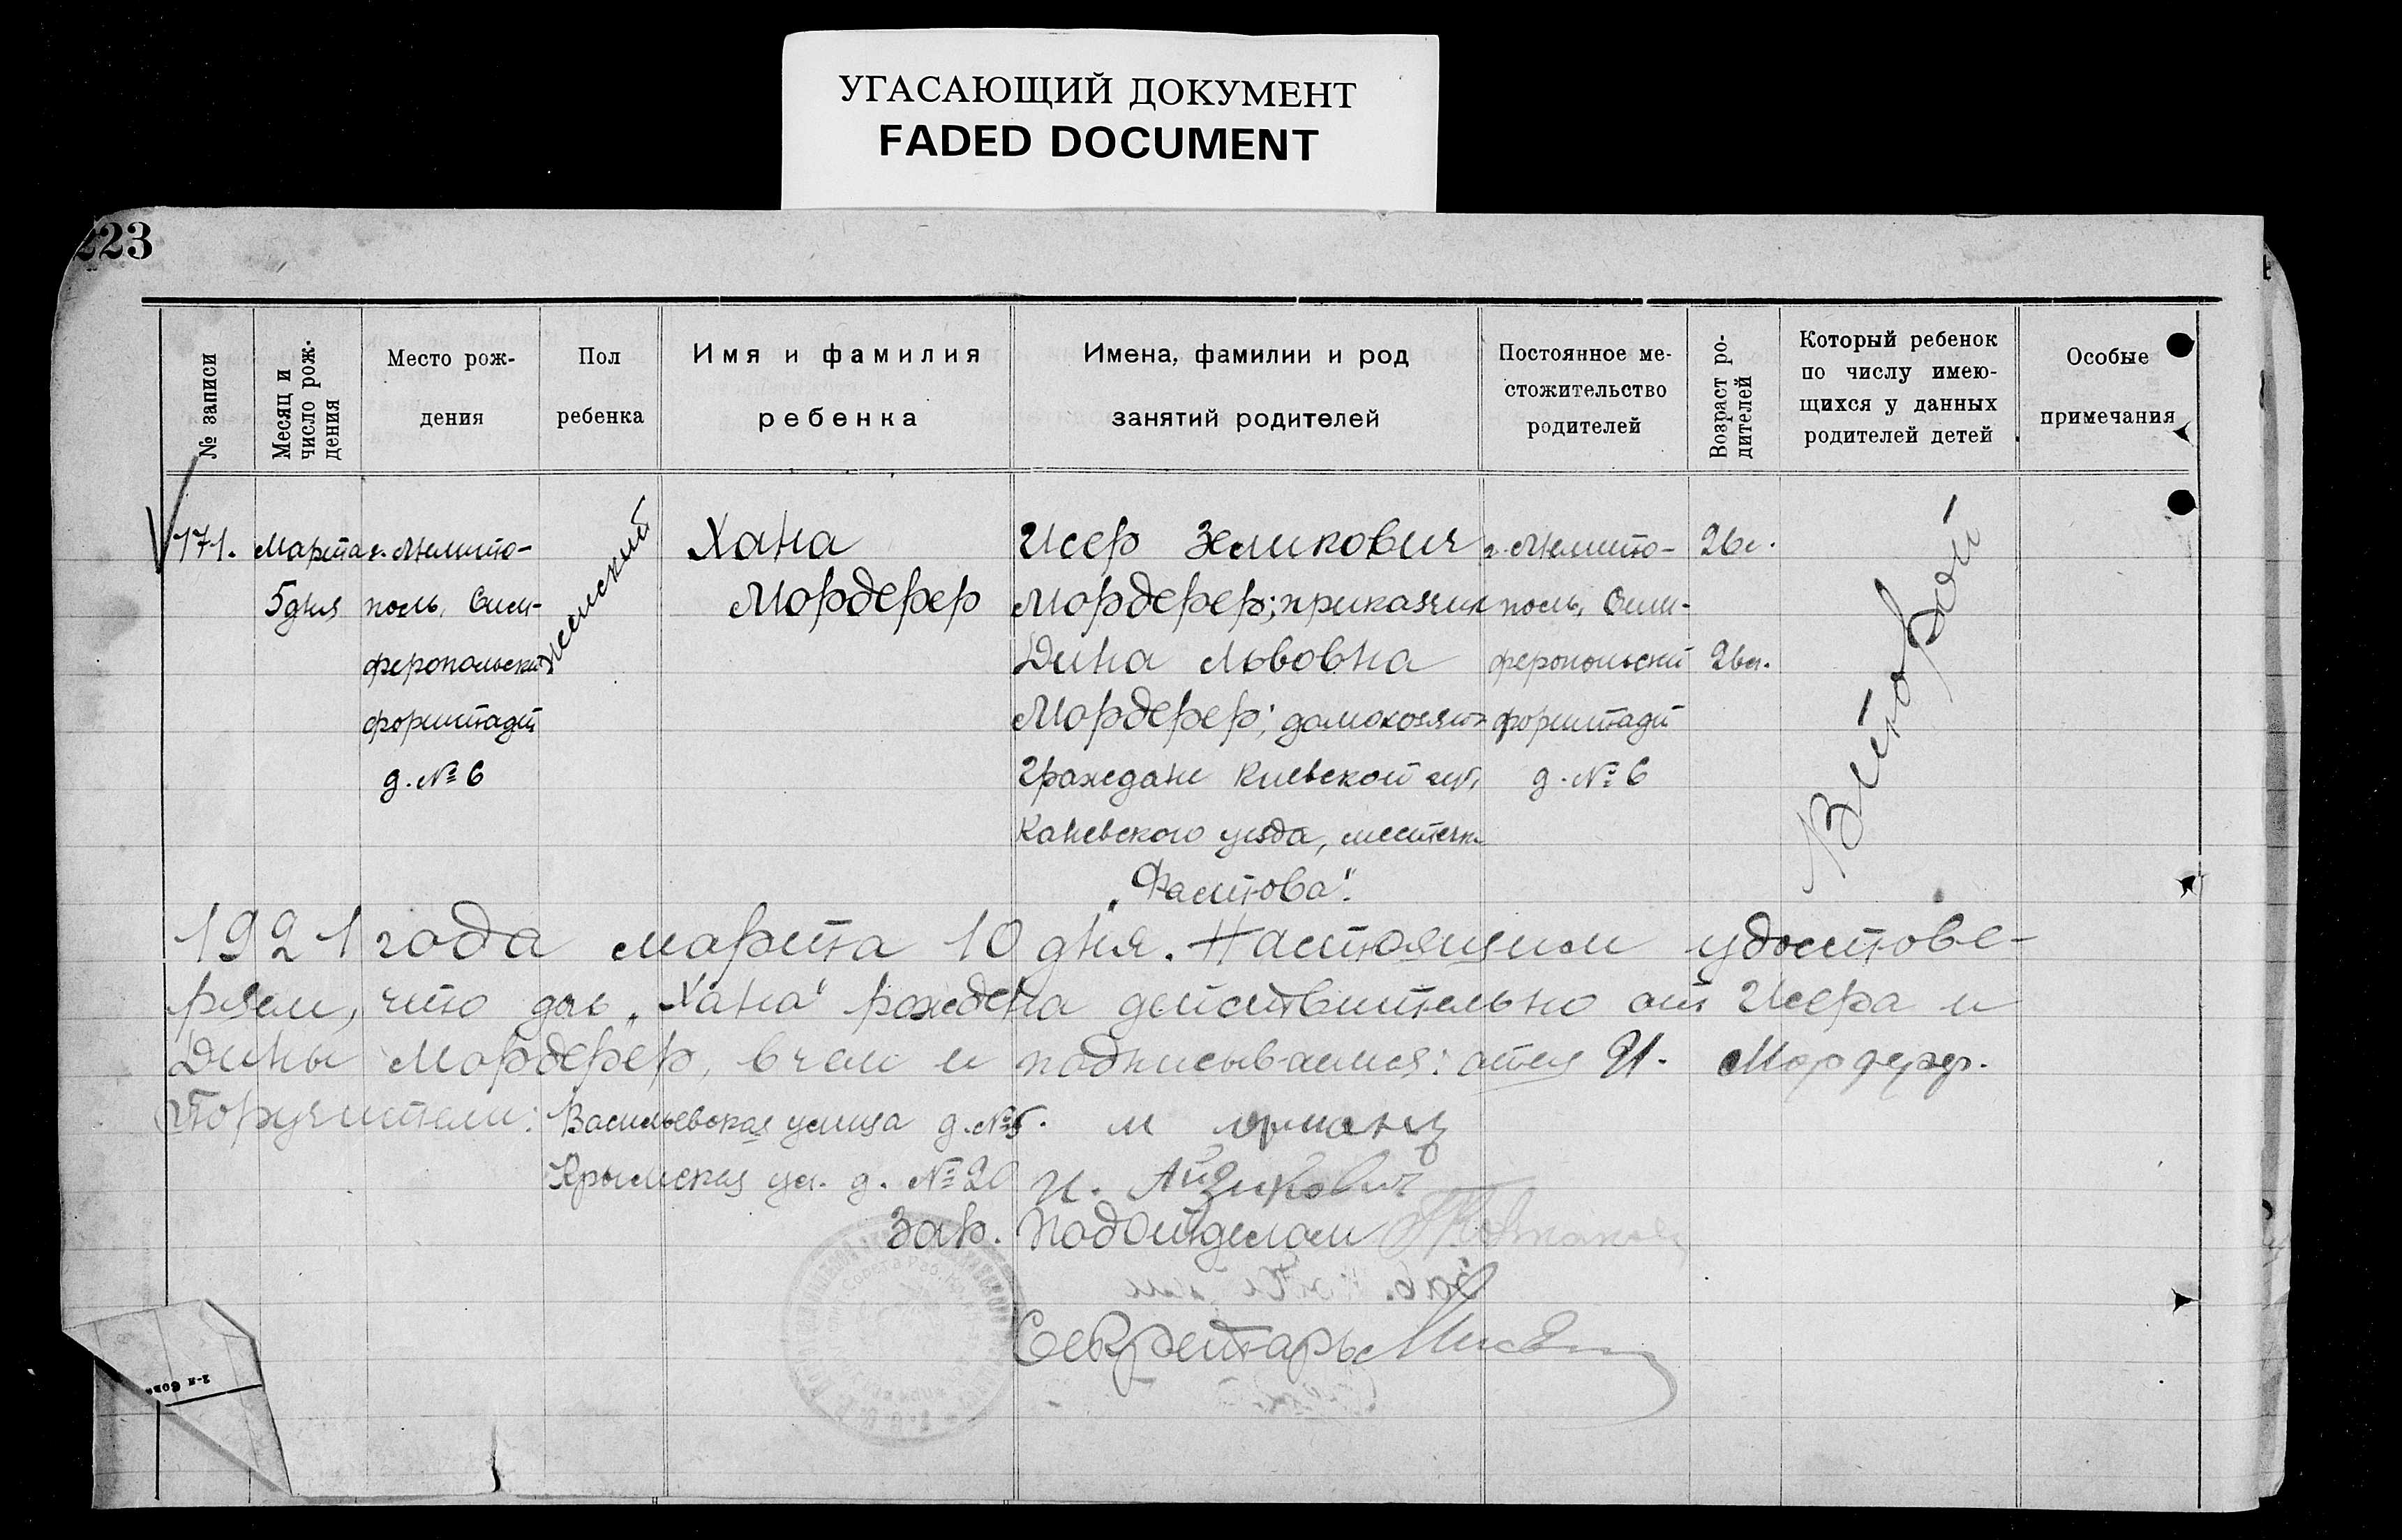 УГАСАЮЩИЙ ДОКУМЕНТ
FADED DOCUMENT
223
№ записи
Месяц и число рождения
Место рож-
дения
Пол
ребенка
Имя и фамилия
ребенка
Имена, фамилии и род
занятий родителей
Постоянное ме-
стожительство
родителей
Возраст ро-
дителей
Который ребенок
по числу имею-
щихся у данных
родителей детей
Особые
примечания
171.
Марта
5 дня
г. Мелито-
поль, Сим-
феропольский
форштадт
д. № 6
женский
Хана
Мордерер
Исер Зеликович
Мордерер; приказчик
Дина Львовна
Мордерер; домохозяйка
Граждане Киевской губ,
Каневского уезда, местечка
„Фастова".
г. Мелито-
поль, Сим-
феропольский
форштадт
д. № 6
26 л.
26 л.
Второй
1921 года марта 10 дня. Настоящим удостове-
ряем, что дочь „Хана" рождена действительно от Исера и
Дины Мордерер, в чем и подписываемся: отец И. Мордерер.
Поручители: Васильевская улица д. № 5.
Крымская ул. д. № 20 И. Айзикович
Зав. Подотделом
Секретарь